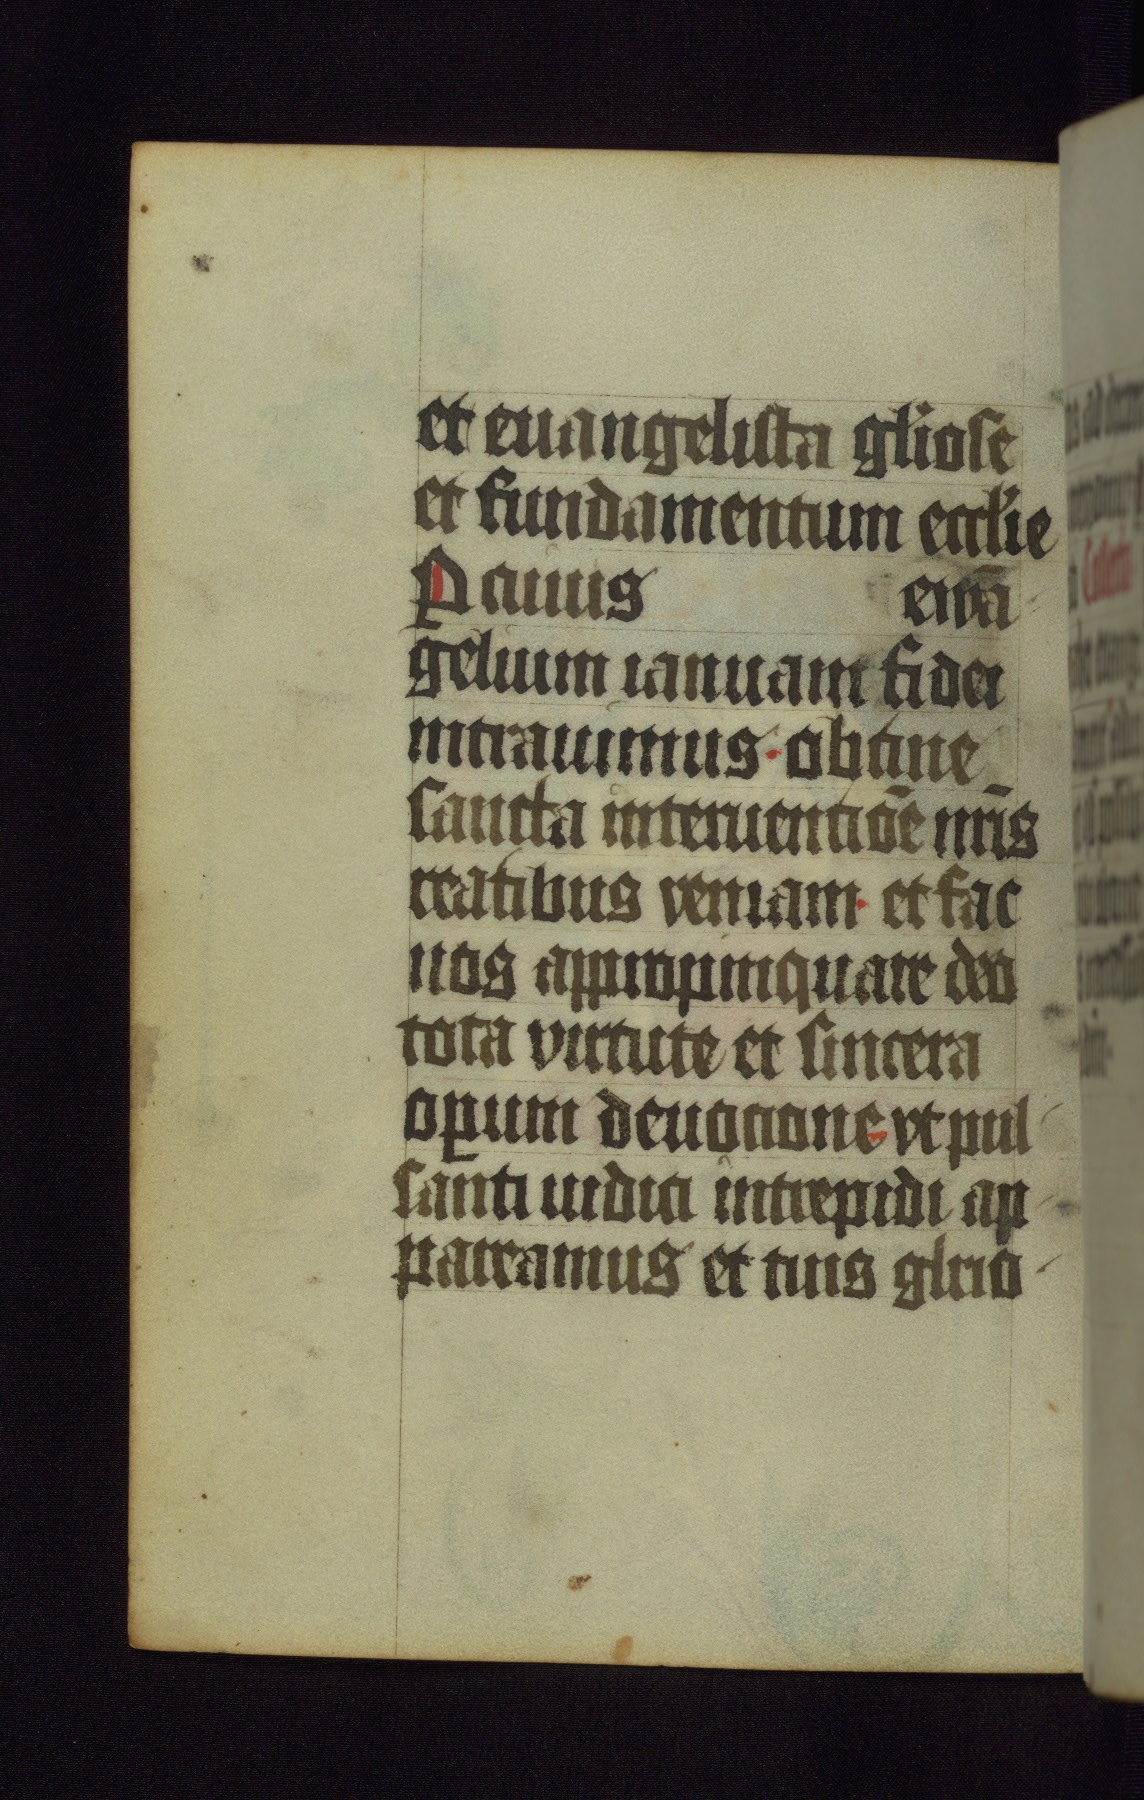 et euangelista gl'iose
et fundamentum eccl'ie
ewā
gelium ianuam fidei
intrauimus · obtine
sancta interuentiōe nr̄is
reatibus veniam · et fac
nos appropinquare deo
tota virtute et sincera
operum deuocione · vt pul
santi iudici intrepidi ap
pareamus et tuis glrio